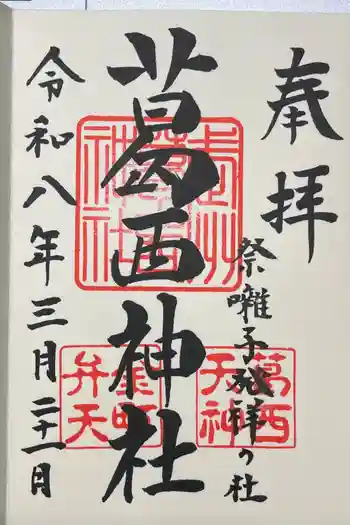 奉拝
祭囃子発祥の社
葛西神社
令和八年三月二十一日
葛西天神
弁天